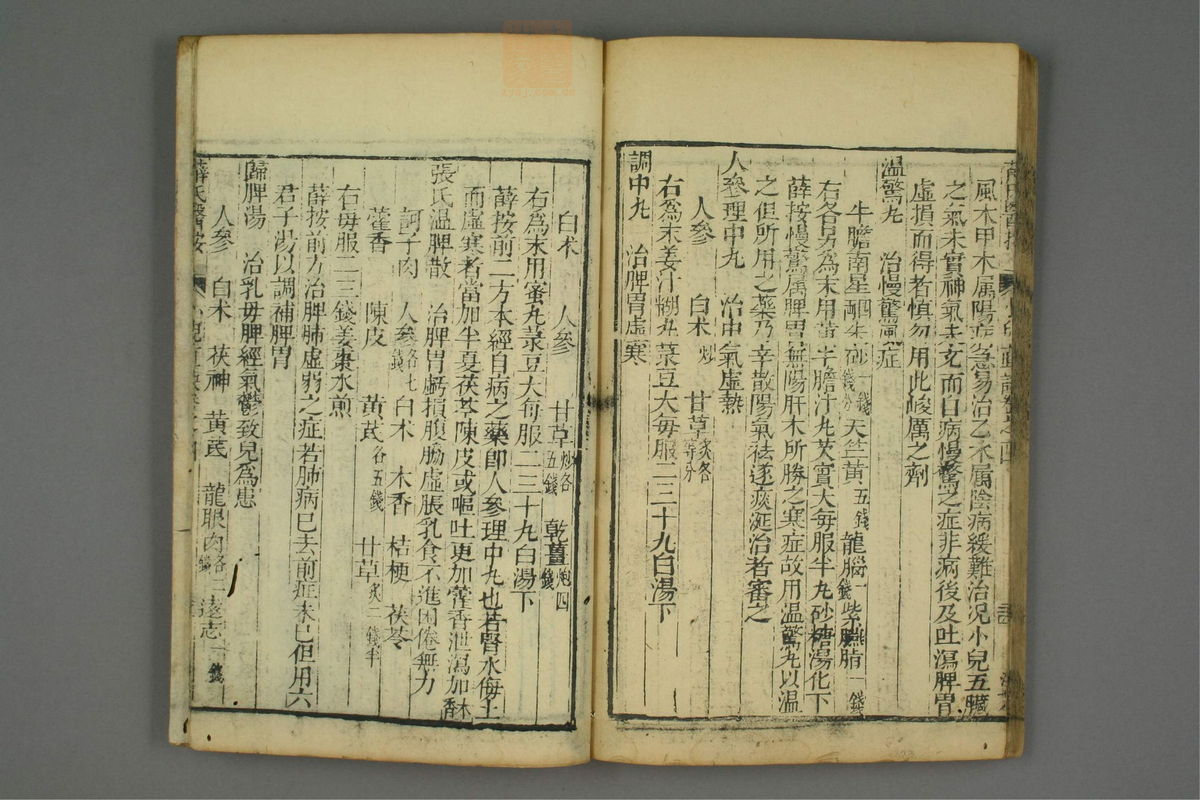 風木甲木属陽症急易治乙木属陰病緩難治况小兒五臟
之氣未實神氣未充而白病慢驚之症非病後及吐瀉脾胃
虛損而得者慎勿用此峻厲之劑
温驚丸　治慢驚風症
牛膽南星 硃砂 一錢 天竺黃 五錢 龍腦 一錢 紫臙脂 一錢
右各另為末用 牛膽汁丸芡實大每服半丸砂糖湯化下
薛按慢驚属脾胃無陽肝木所勝之寒症故用温驚丸以温
之但所用之藥乃辛散陽氣祛逐痰涎治者審之
人參理中丸　治中氣虛熱
人參　白术 炒　甘草 炙各等分
右為末姜汁糊丸菉豆大每服二三十丸白湯下
調中丸　治脾胃虛寒
白术　人參　甘草 炒各五錢　乾薑 炮四錢
右為末用蜜丸菉豆大每服二三十丸白湯下
薛按前二方本經自病之藥即人參理中丸也若腎水侮土
而虛寒者當加半夏茯苓陳皮或嘔吐更加藿香泄瀉加木香
張氏温脾散　治脾胃虧損腹脇虛脹乳食不進困倦無力
訶子肉　人參 各七錢　白术　木香　桔梗　茯苓
藿香　陳皮　黃芪 各五錢　甘草 炙二錢半
右每服二三錢姜棗水煎
薛按前方治脾肺虛弱之症若肺病已去前症未已但用六
君子湯以調補脾胃
歸脾湯　治乳母脾經氣鬱致兒為患
人參　白术　茯神　黃芪　龍眼肉 各二錢　遠志 一錢
薛氏醫按